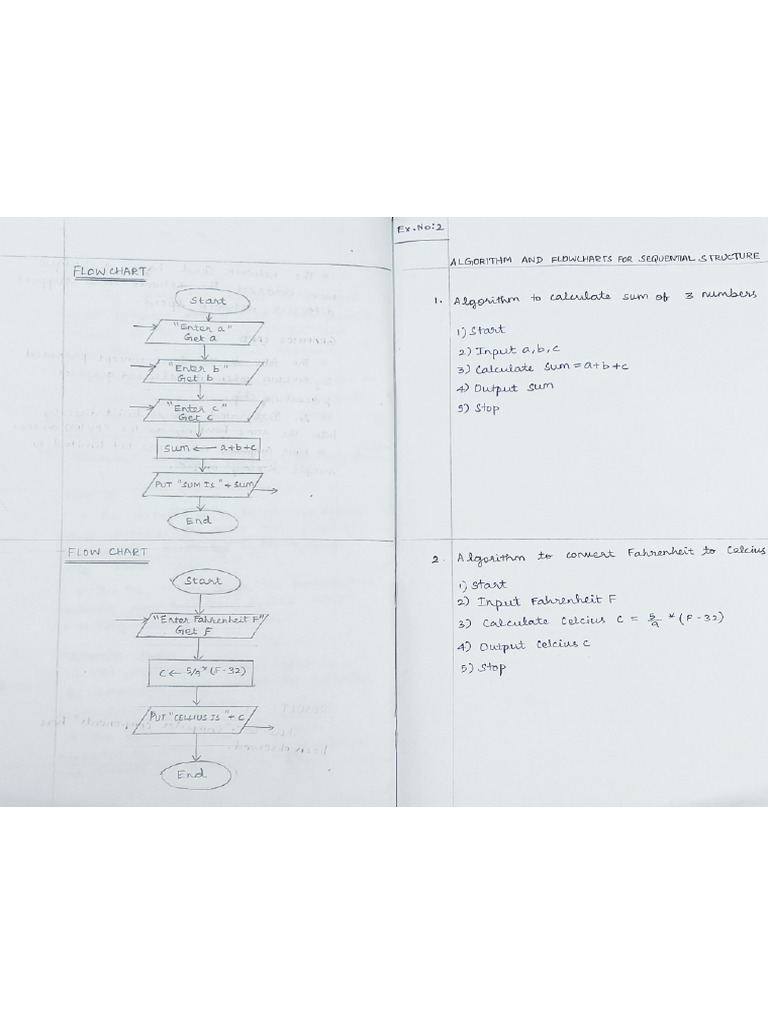 FLOW CHART
Start
"Enter a"
Get a
"Enter b"
Get b
"Enter c"
Get c
Sum ← a+b+c
PUT "SUM IS" + Sum
End
FLOW CHART
Start
"Enter Fahrenheit F"
Get F
C ← 5/9*(F-32)
PUT "CELCIUS IS" + C
End
Ex.No:2
ALGORITHM AND FLOWCHARTS FOR SEQUENTIAL STRUCTURE
1. Algorithm to calculate sum of 3 numbers
1) Start
2) Input a, b, c
3) Calculate sum = a+b+c
4) Output sum
5) Stop
2. Algorithm to convert Fahrenheit to Celcius
1) Start
2) Input Fahrenheit F
3) Calculate Celcius C = 5/9 * (F-32)
4) Output Celcius C
5) Stop